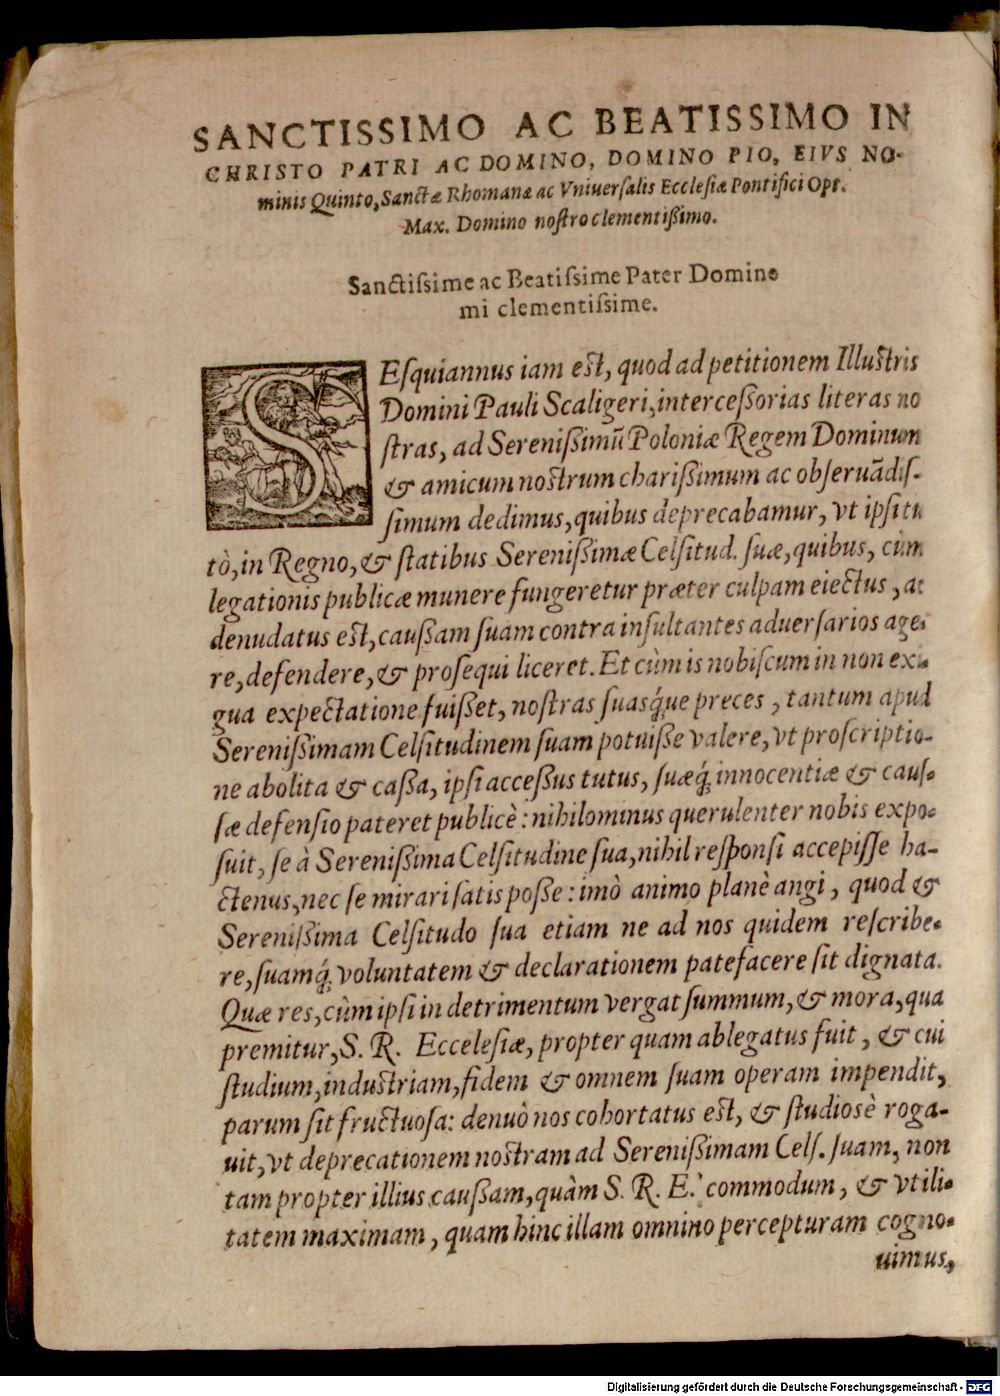 SANCTISSIMO AC BEATISSIMO IN
CHRISTO PATRI AC DOMINO, DOMINO PIO, EIVS NO-
minis Quinto, Sanctæ Rhomanæ ac Vniuerſalis Eccleſiæ Pontifici Opt.
Max. Domino noſtro clementißimo.
Sanctiſsime ac Beatiſsime Pater Domine
mi clementiſsime.
SEſquiannus iam eſt, quod ad petitionem Illuſtris
Domini Pauli Scaligeri, interceßorias literas no
ſtras, ad Sereniſſimū Poloniæ Regem Dominum
& amicum noſtrum charißimum ac obſeruādiſ-
ſimum dedimus, quibus deprecabamur, vt ipſi tu
tò, in Regno, & ſtatibus Sereniſſimæ Celſitud. ſuæ, quibus, cùm
legationis publicæ munere fungeretur præter culpam eiectus, ac
denudatus eſt, cauſſam ſuam contra inſultantes aduerſarios age-
re, defendere, & proſequi liceret. Et cùm is nobiſcum in non exi-
gua expectatione fuißet, noſtras ſuasq́ue preces, tantum apud
Sereniſſimam Celſitudinem ſuam potuiſſe valere, vt proſcriptio-
ne abolita & caßa, ipſi acceßus tutus, ſuæq́; innocentiæ & cauſ-
ſæ defenſio pateret publicè: nihilominus querulenter nobis expo-
ſuit, ſe à Sereniſſima Celſitudine ſua, nihil reſponſi accepiſſe ha-
ctenus, nec ſe mirari ſatis poſſe: imò animo planè angi, quod &
Sereniſſima Celſitudo ſua etiam ne ad nos quidem reſcribe-
re, ſuamq́; voluntatem & declarationem patefacere ſit dignata.
Quæ res, cùm ipſi in detrimentum vergat ſummum, & mora, qua
premitur, S. R. Eccelеſiæ, propter quam ablegatus fuit, & cui
ſtudium, induſtriam, fidem & omnem ſuam operam impendit,
parum ſit fructuoſa: denuò nos cohortatus eſt, & ſtudiosè roga-
uit, vt deprecationem noſtram ad Sereniſſimam Celſ. ſuam, non
tam propter illius cauſſam, quàm S. R. E. commodum, & vtili-
tatem maximam, quam hinc illam omnino percepturam cogno-
uimus,
Digitalisierung gefördert durch die Deutsche Forschungsgemeinschaft - DFG